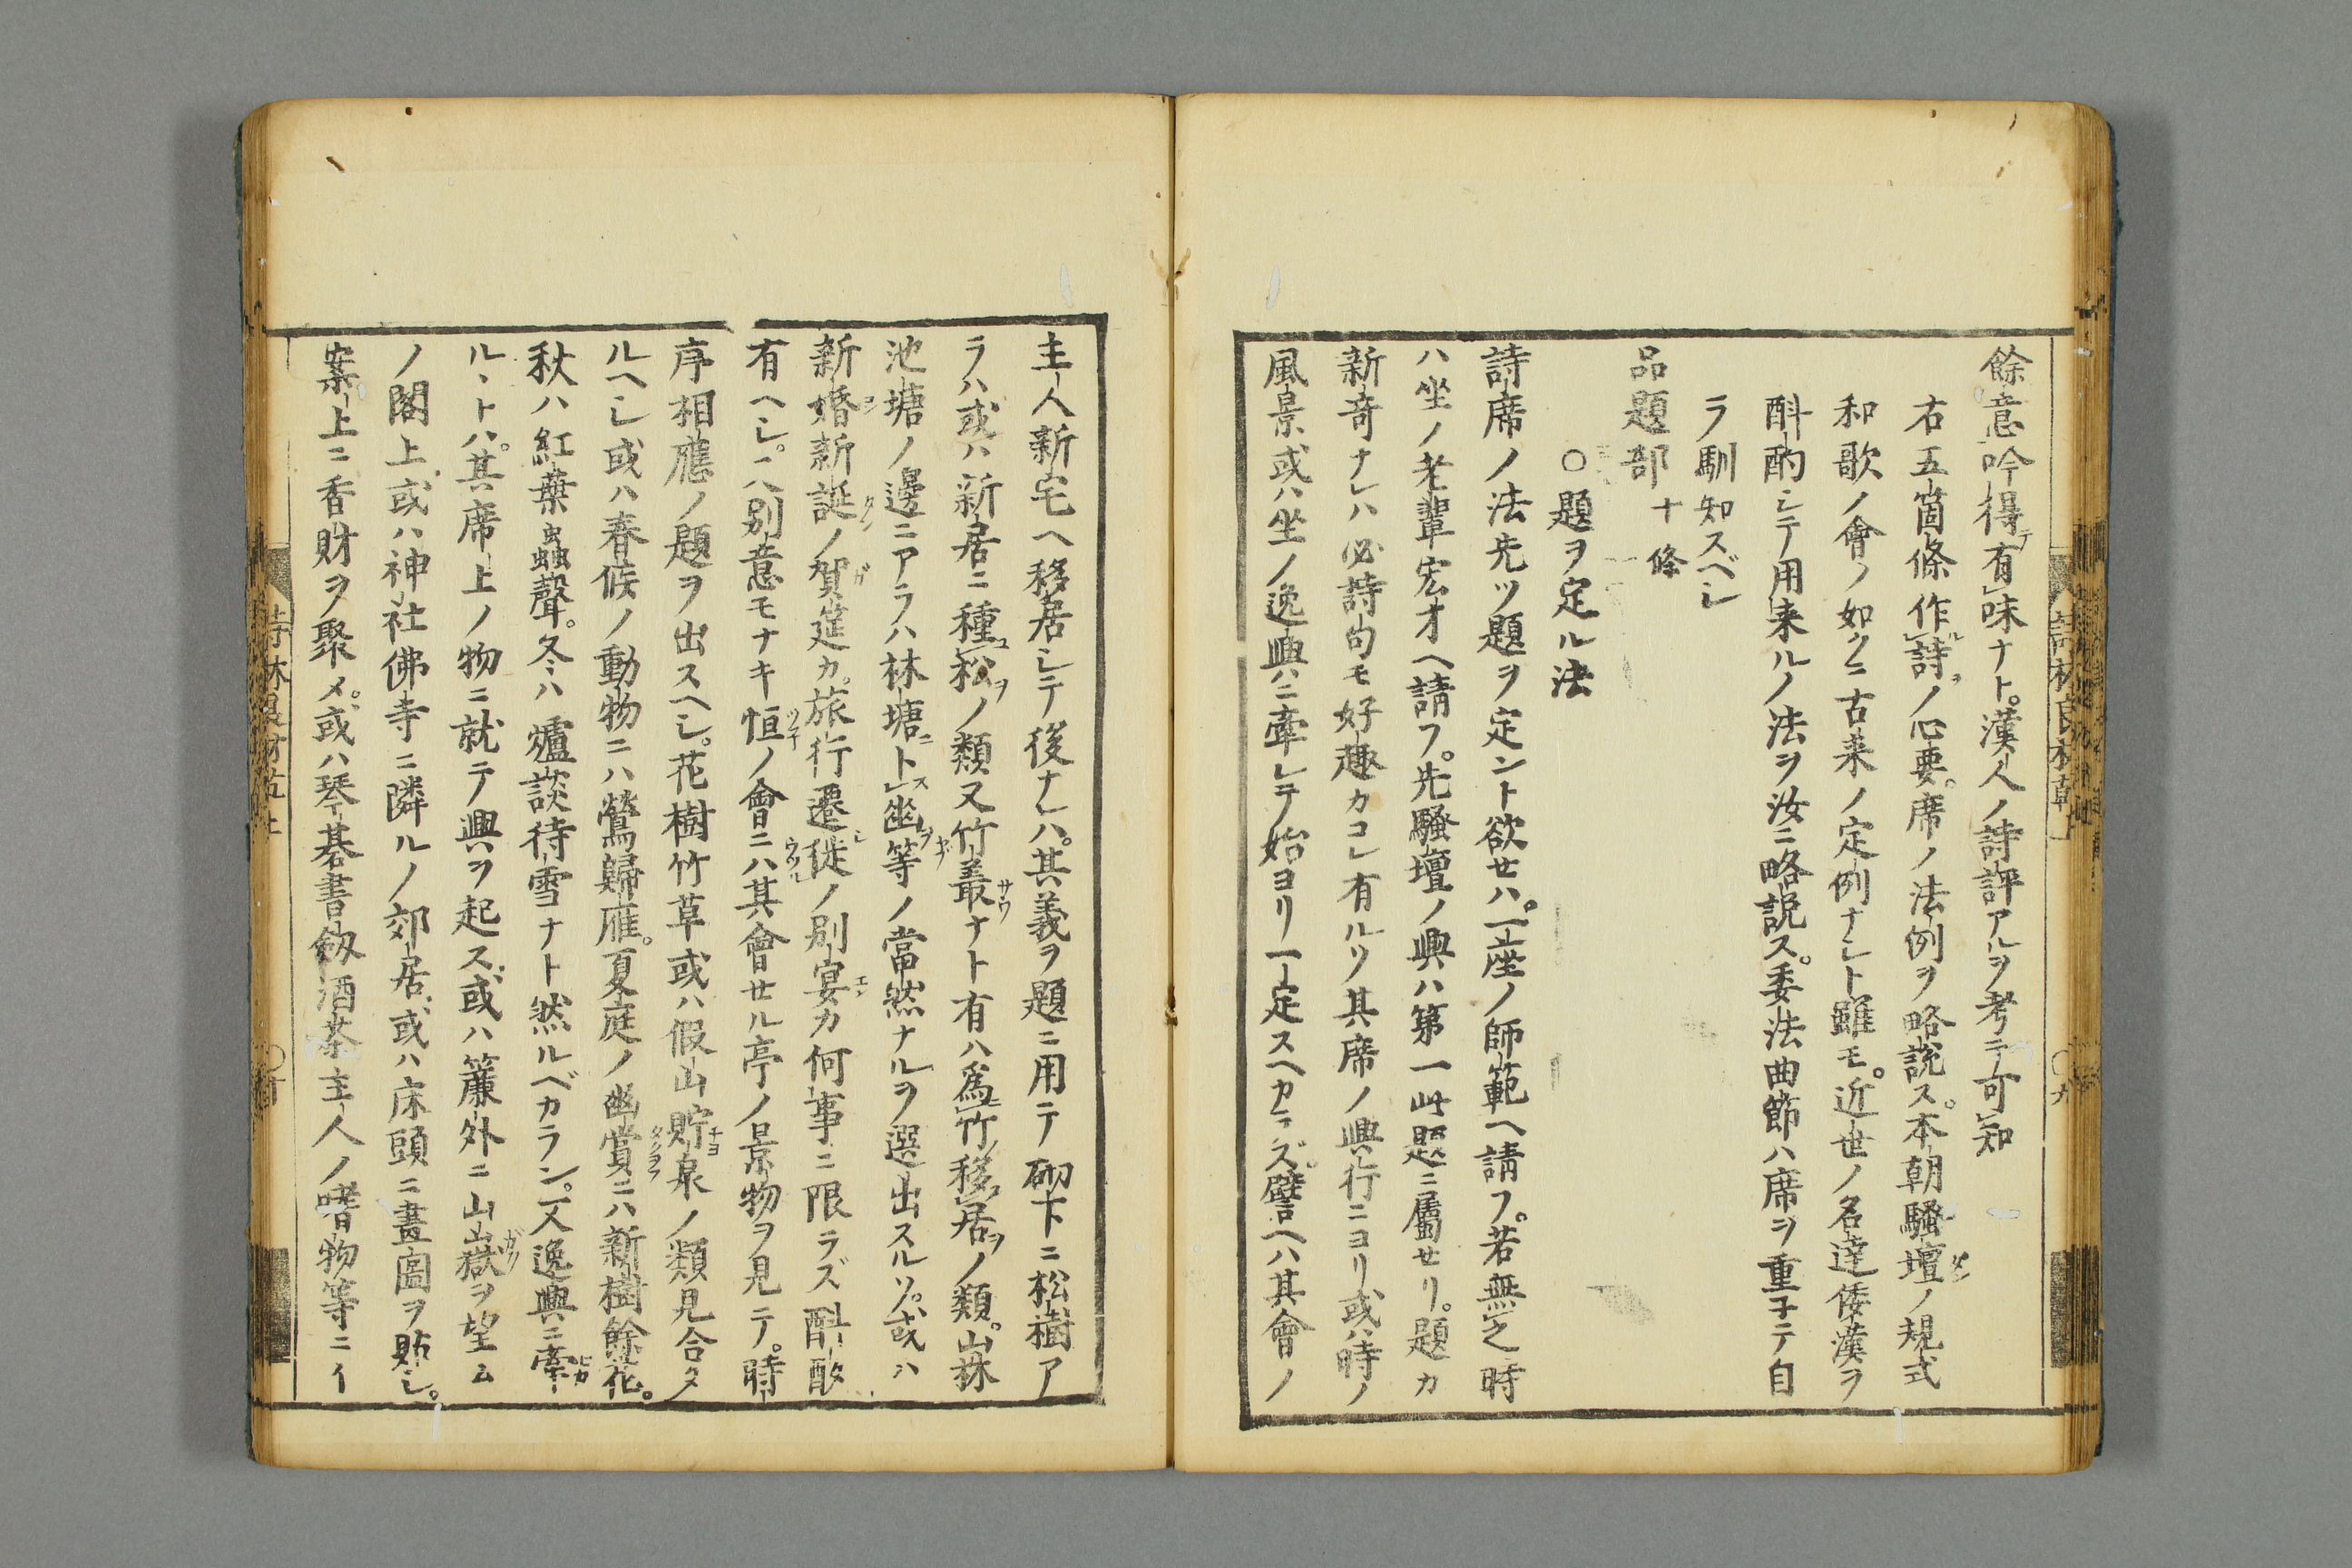 餘意吟得テ有レ味ナト。漢人ノ詩評アルヲ考テ可レ知
右五箇條作ルレ詩ヲノ心要。席ノ法例ヲ略説ス。本朝騷壇ノ規式
和歌ノ會ノ如クニ古来ノ定例ナシト雖モ。近世ノ名達倭漢ヲ
斟酌シテ用来ルノ法ヲ汝ニ略説ス。委法曲節ハ席ヲ重子テ自
ラ馴知スベシ
品題部 十條
○題ヲ定ル法
詩席ノ法先ツ題ヲ定ント欲セハ。一座ノ師範ヘ請フ。若無レ之時
ハ坐ノ老輩宏才ヘ請フ。先騷壇ノ興ハ第一此題ニ屬セリ。題カ
新奇ナレハ必詩句モ好趣カコレ有ルソ其席ノ興行ニヨリ或ハ時ノ
風景或ハ坐ノ逸興ニ牽レテ始ヨリ一定スヘカラズ。譬ヘハ其會ノ
主人新宅ヘ移居シテ後ナレハ。其義ヲ題ニ用テ砌下ニ松樹ア
ラハ或ハ新居ニ種ユレ松ヲノ類又竹叢サウナト有ハ爲ニレ竹ノ移レ居ヲノ類。山林
池塘ノ邊ニアラハ林塘ニトスレ幽ヲ等ノ當然ナルヲ選出スルソ。或ハ
新婚コン新誕タンノ賀ガ筵カ。旅行遷徙シノ別宴エンカ何事ニ限ラズ斟酌
有ヘシ。又別意モナキ恒ツネノ會ニハ其會セル亭ノ景物ヲ見テ。時
序相應ノ題ヲ出スヘシ。花樹竹草或ハ假山貯チヨ泉ノ類見合タ
ルヘシ或ハ春候ノ動物ニハ鶯歸雁。夏庭ノ幽賞ニハ新樹餘花。
秋ハ紅葉蟲聲。冬ハ爐談待雪ナト然ルベカラン。又逸興ニ牽ヒカ
ルヽトハ。其席上ノ物ニ就テ興ヲ起ス。或ハ簾外ニ山嶽ガクヲ望ム
ノ閣上。或ハ神社佛寺ニ隣ルノ郊居。或ハ床頭ニ畫圖ヲ貼シ。
案上ニ香財ヲ聚メ。或ハ琴碁書劔酒茶主人ノ嗜物等ニイ